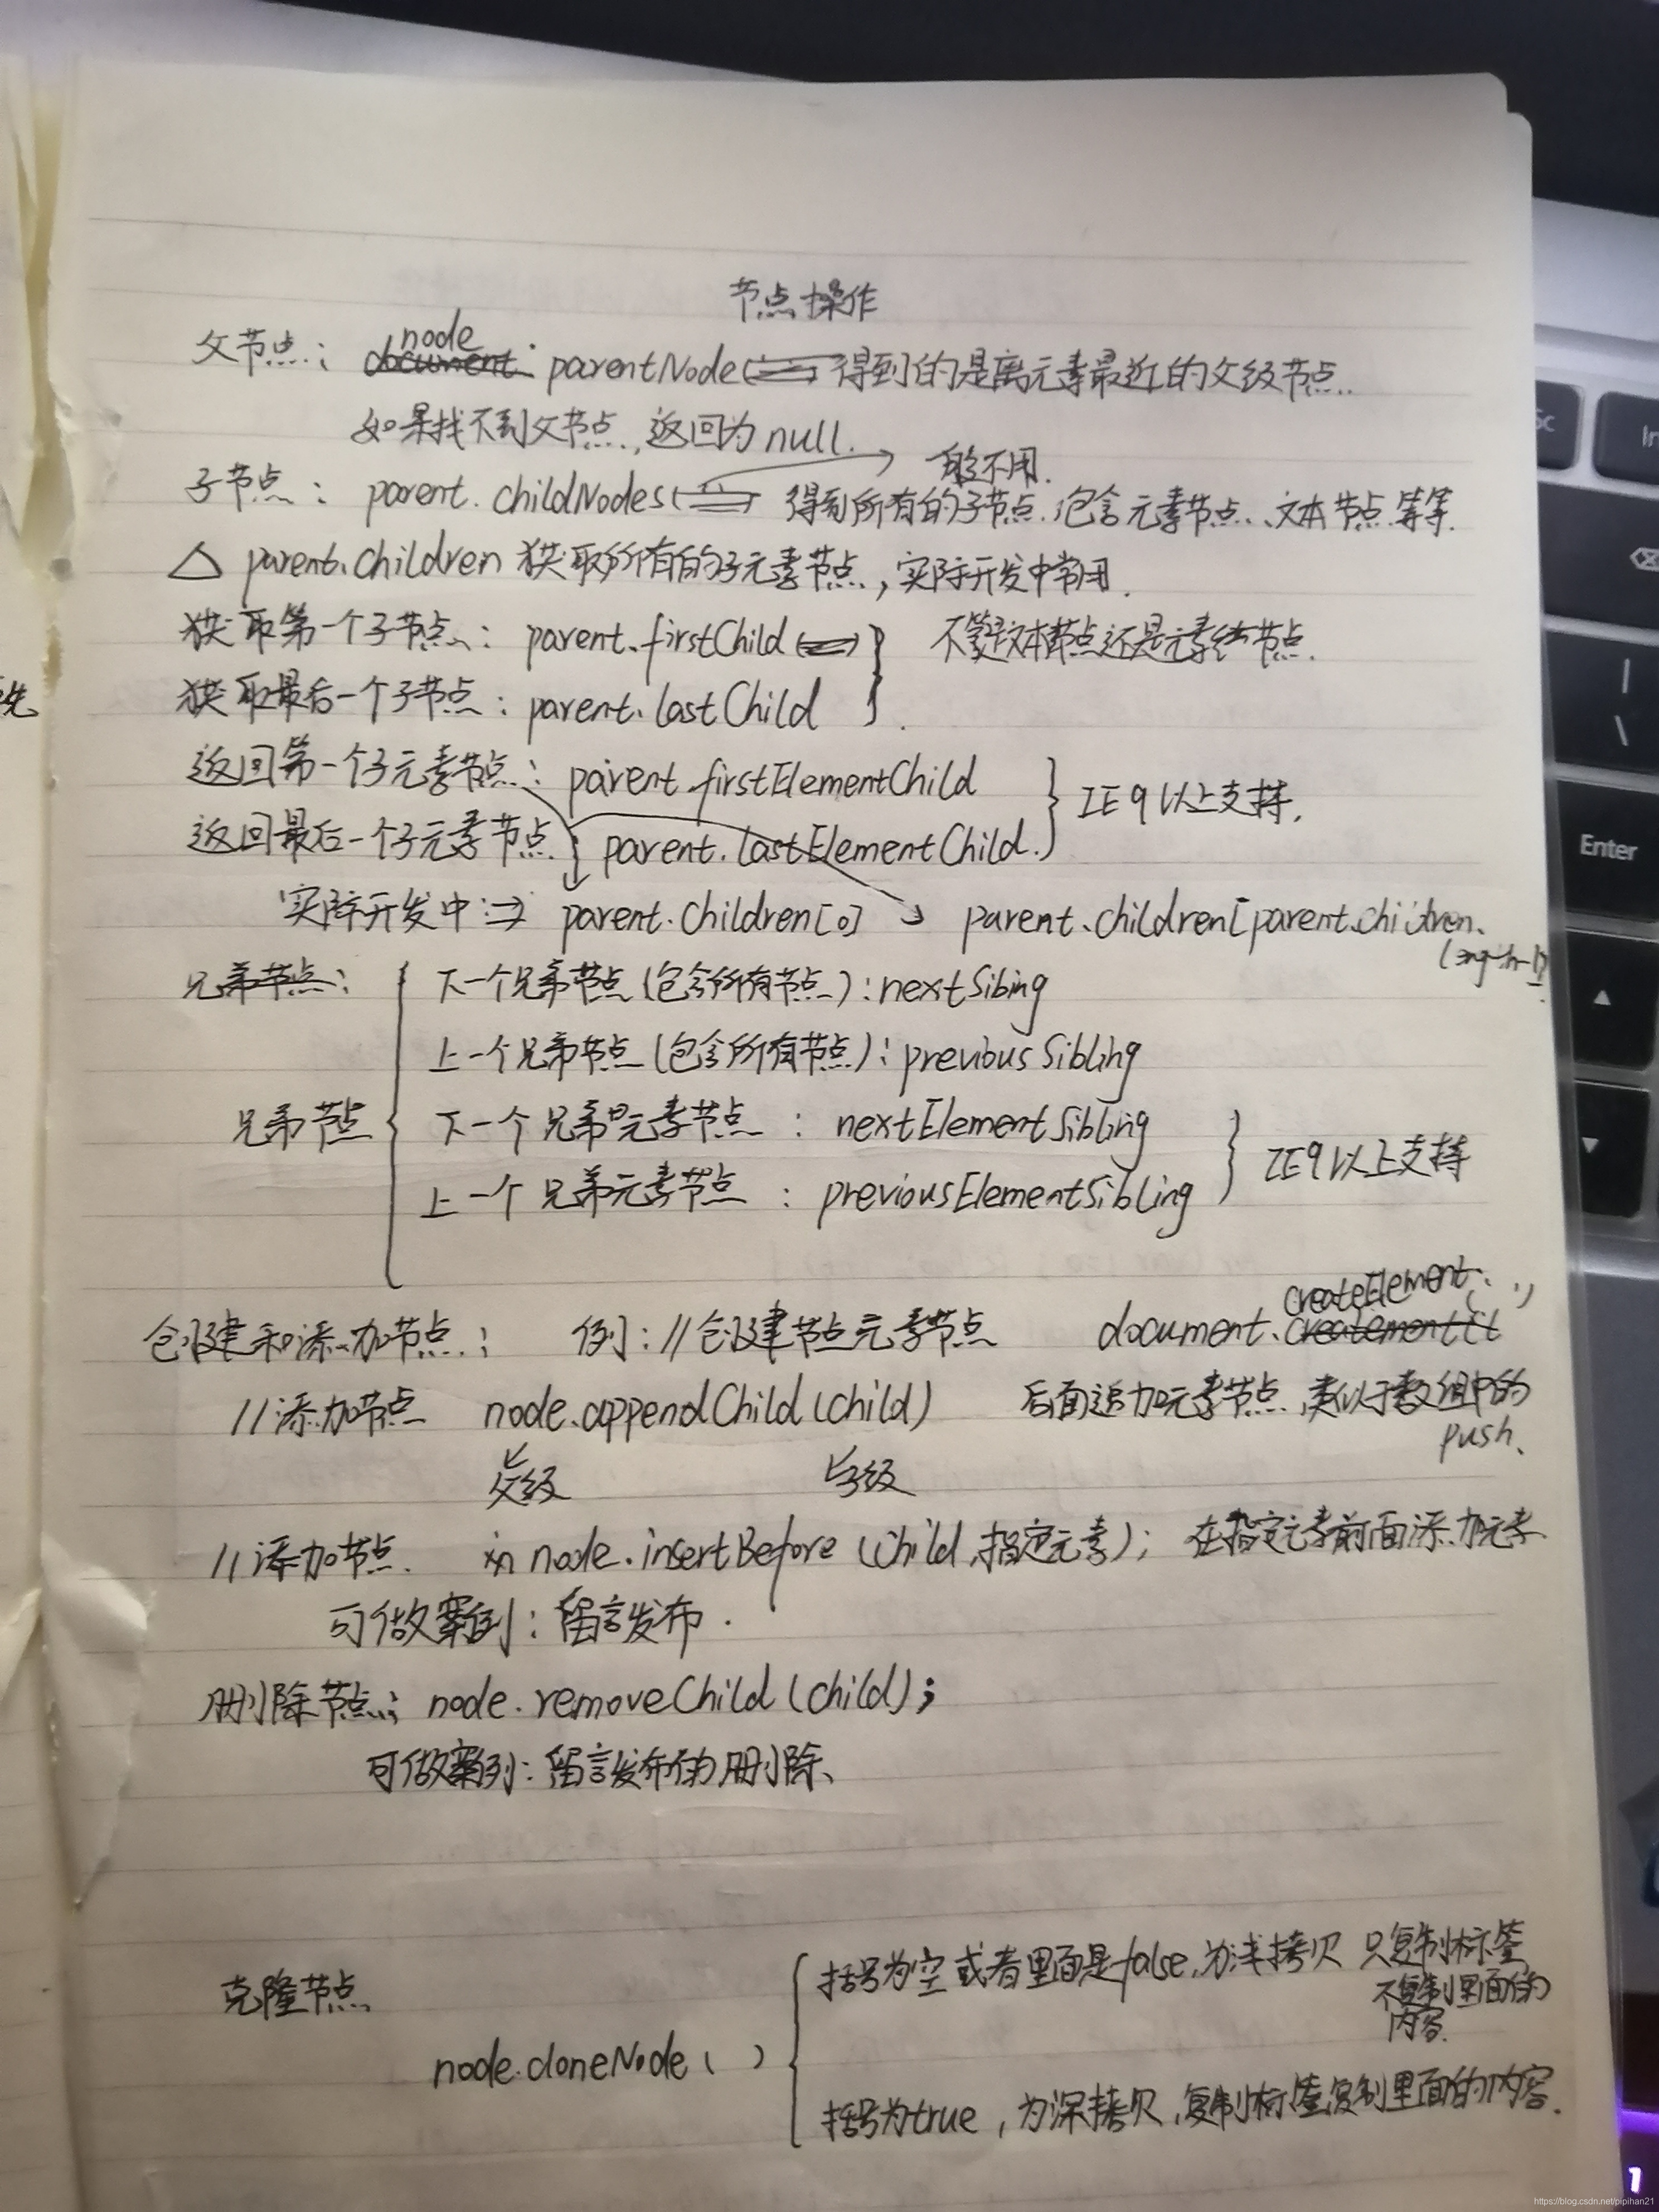 节点操作
父节点: node.parentNode 得到的是离元素最近的父级节点.
如果找不到父节点.,返回为null.
般不用.
子节点: parent.childNodes 得到所有的子节点.包含元素节点、文本节点等等.
△ parent.children 获取所有的子元素节点,实际开发中常用.
获取第一个子节点: parent.firstChild } 不管是文本节点还是元素节点.
获取最后一个子节点: parent.lastChild
返回第一个子元素节点: parent.firstElementChild } IE9以上支持.
返回最后一个子元素节点. parent.lastElementChild.
实际开发中:⇒ parent.children[0] parent.children[parent.children.
length-1]
兄弟节点: { 下一个兄弟节点(包含所有节点): nextSibing
上一个兄弟节点(包含所有节点): previousSibling
兄弟节点 下一个兄弟元素节点: nextElementSibling } IE9以上支持
上一个兄弟元素节点: previousElementSibling
创建和添加节点: 例: //创建节点元素节点 document.createElement('')
//添加节点 node.appendChild(child) 后面追加元素节点,类似于数组中的
push.
父级 子级
//添加节点. node.insertBefore(child,指定元素); 在指定元素前面添加元素
可做案例: 留言发布.
删除节点: node.removeChild(child);
可做案列: 留言发布的删除、
克隆节点
括号为空或者里面是false,为浅拷贝 只复制标签
不复制里面的
内容.
node.cloneNode( )
括号为true,为深拷贝,复制标签复制里面的内容.
Enter
1
https://blog.csdn.net/pipihan21